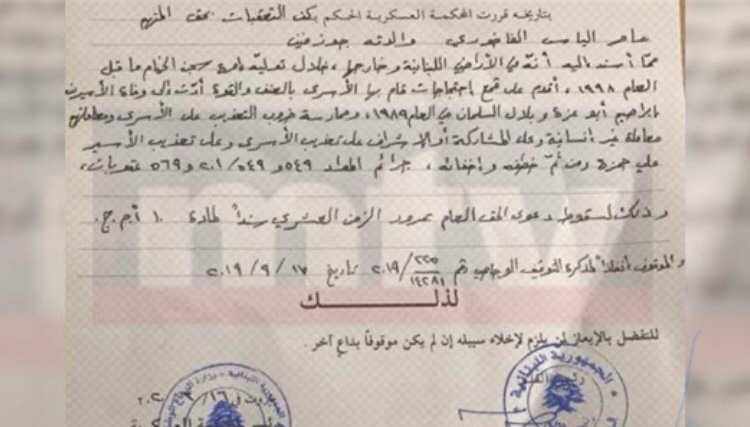 بتاريخه قررت المحكمة العسكرية الحكم بكف التعقبات بحق المتهم
عامر الياس الفاخوري والدته جوزفين
مما أسند اليه أنه في الأراضي اللبنانية وخارجها، خلال توليه إمرة سجن الخيام ما قبل
العام ١٩٩٨، أقدم على قمع احتجاجات قام بها الأسرى بالعنف والقوة أدّت إلى وفاة الأسيرين
ابراهيم أبو عزة و بلال السلمان في العام ١٩٨٩، وممارسة ضروب التعذيب على الأسرى ومعاملتهم
معاملة غير انسانية وعلى المشاركة أو الاشراف على تعذيب الأسرى وعلى تعذيب الأسير
علي حمزة ومن ثمّ خطفه وإخفائه، جرائم المواد ٥٤٩ و ٥٤٩/٢٠١ و ٥٦٩ عقوبات،
وذلك لسقوط دعوى الحق العام بمرور الزمن العشري سنداً لمادة ١٠ أ.م.ج.
والموقوف إنفاذاً لمذكرة التوقيف الوجاهية رقم ٢٢٥/١٤٢٨١/٢٠١٩ تاريخ ١٧/٩/٢٠١٩
لذلك
للتفضل بالإيعاز لمن يلزم لإخلاء سبيله إن لم يكن موقوفاً بداعٍ آخر.
الجمهورية اللبنانية
mtv